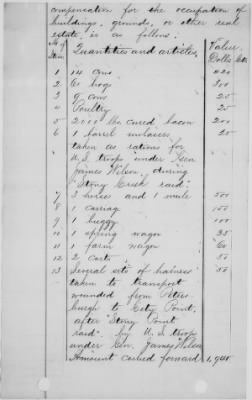 compensation for the occupation of
buildings, grounds, or other real
estate, is as follows:
No. of Item Quantities and articles Value Dolls Cts
1 14 cows 420
2 60 hogs 300
3 9 cows
4 Poultry 25
5 2000 lbs cured bacon 200
6 1 barrel molasses 50
taken as rations for
U.S. troops under Gen
James Wilson, during
"Stony Creek raid".
7 3 horses and 1 mule 500
8 1 carriage 100
9 1 buggy 100
10 1 spring wagon 35
11 1 farm wagon 60
12 2 carts 50
13 Several sets of harness 50
taken to transport
wounded from Peters-
burgh to City Point,
after "Stony Point
raid" by U.S. troops
under Gen. James Wilson
Amount carried forward